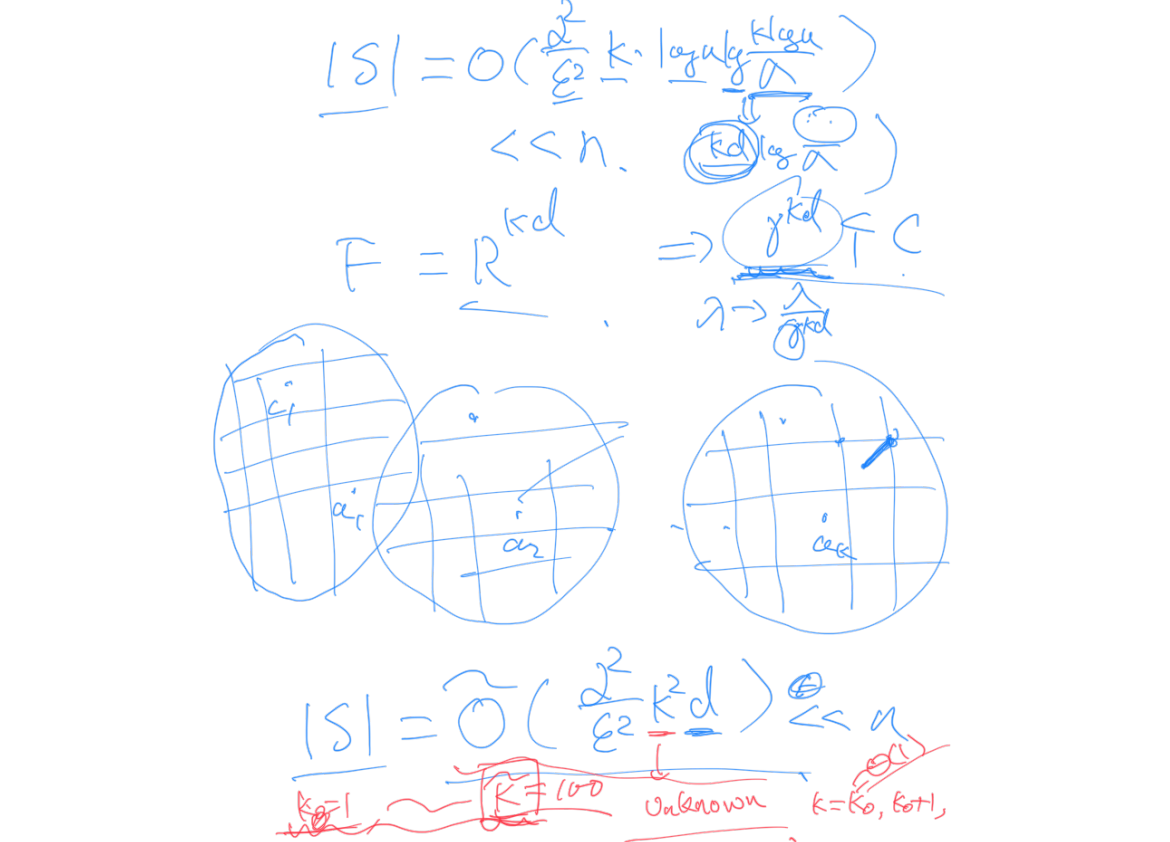 |S| = O(α²/ε² k · log n log k log n/λ)
<< n. kd log ../λ)
F = R^{kd} ⇒ γ^{kd} ↑ C
λ → λ/γ^{kd}
c₁
a₁
a₂
a_k
|S| = Õ(α²/ε² k² d) << n
k₀=1 k̃=100 unknown k=k₀, k₀+1,